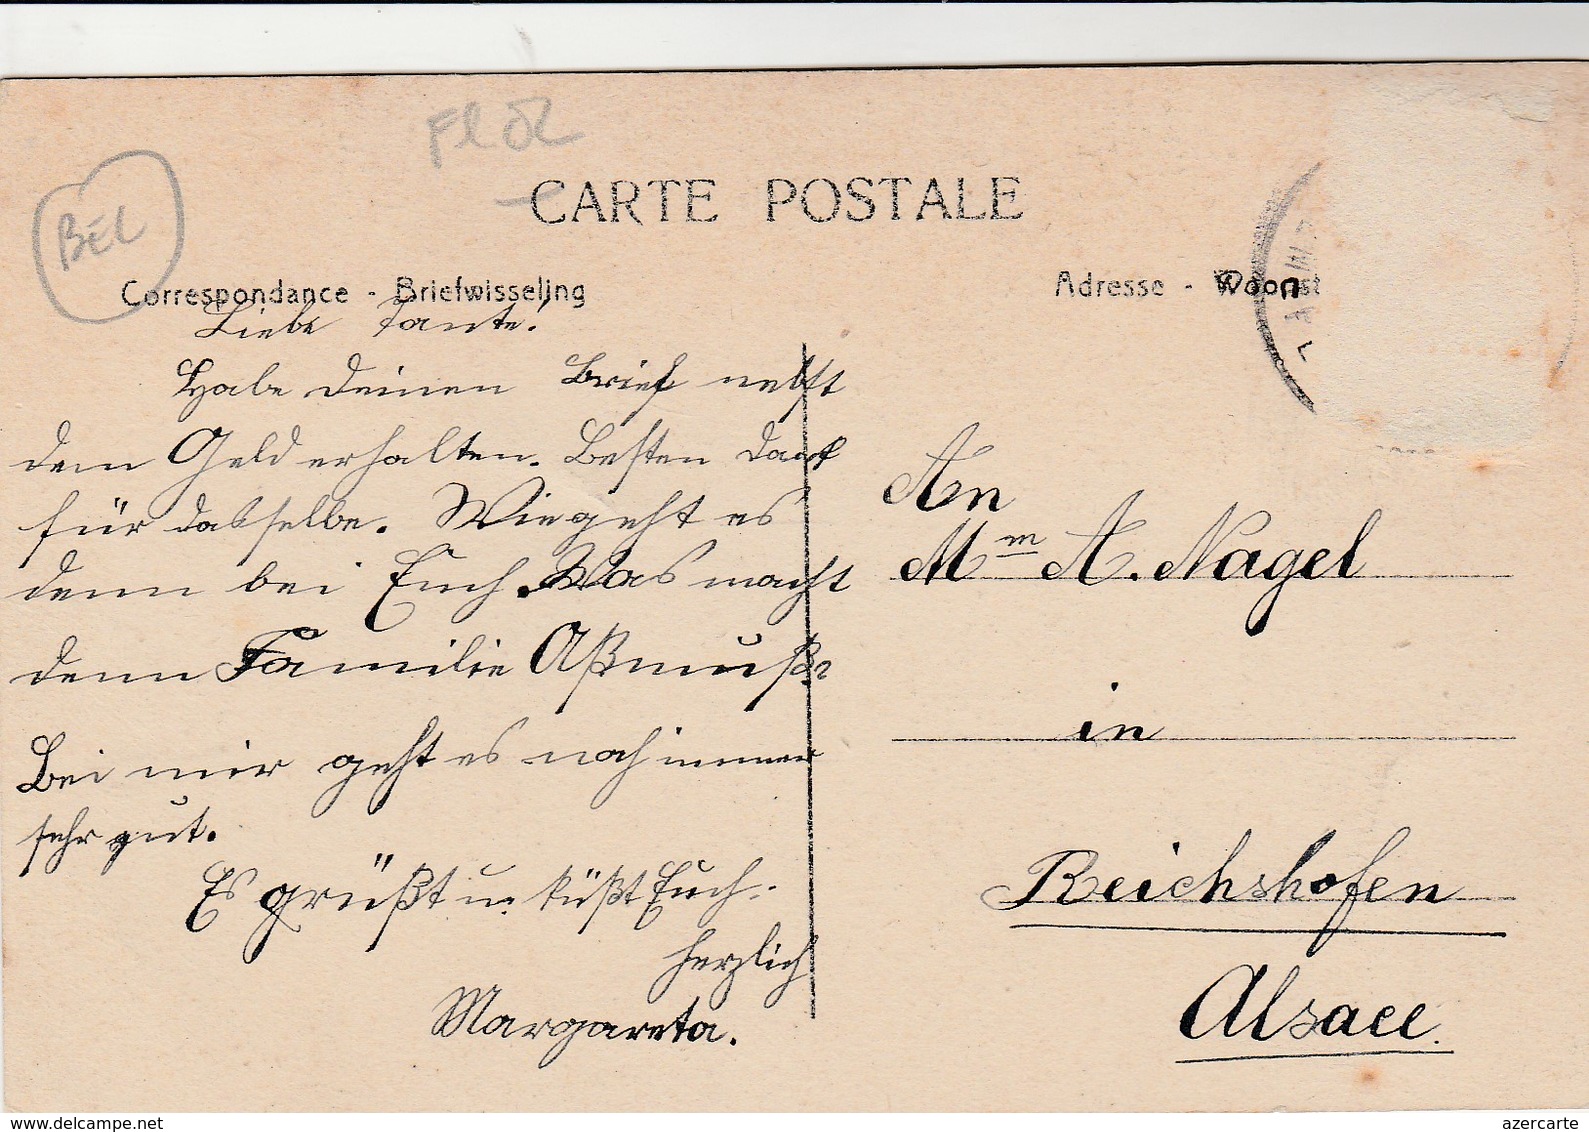 Fl OL
BEL
CARTE POSTALE
Correspondance - Briefwisseling
Adresse - Woonst
Liebe Tante!
Habe deinen Brief nebst
dem Geld erhalten. Besten Dank
für dasselbe. Wie geht es
denn bei Euch. Was macht
denn Familie Aßmuß?
Bei mir geht es noch immer
sehr gut.
Es grüßt u. küßt Euch
herzlich
Margareta.
An
Mm A. Nagel
in
Reichshofen
Alsace.
www.delcampe.net
azercarte